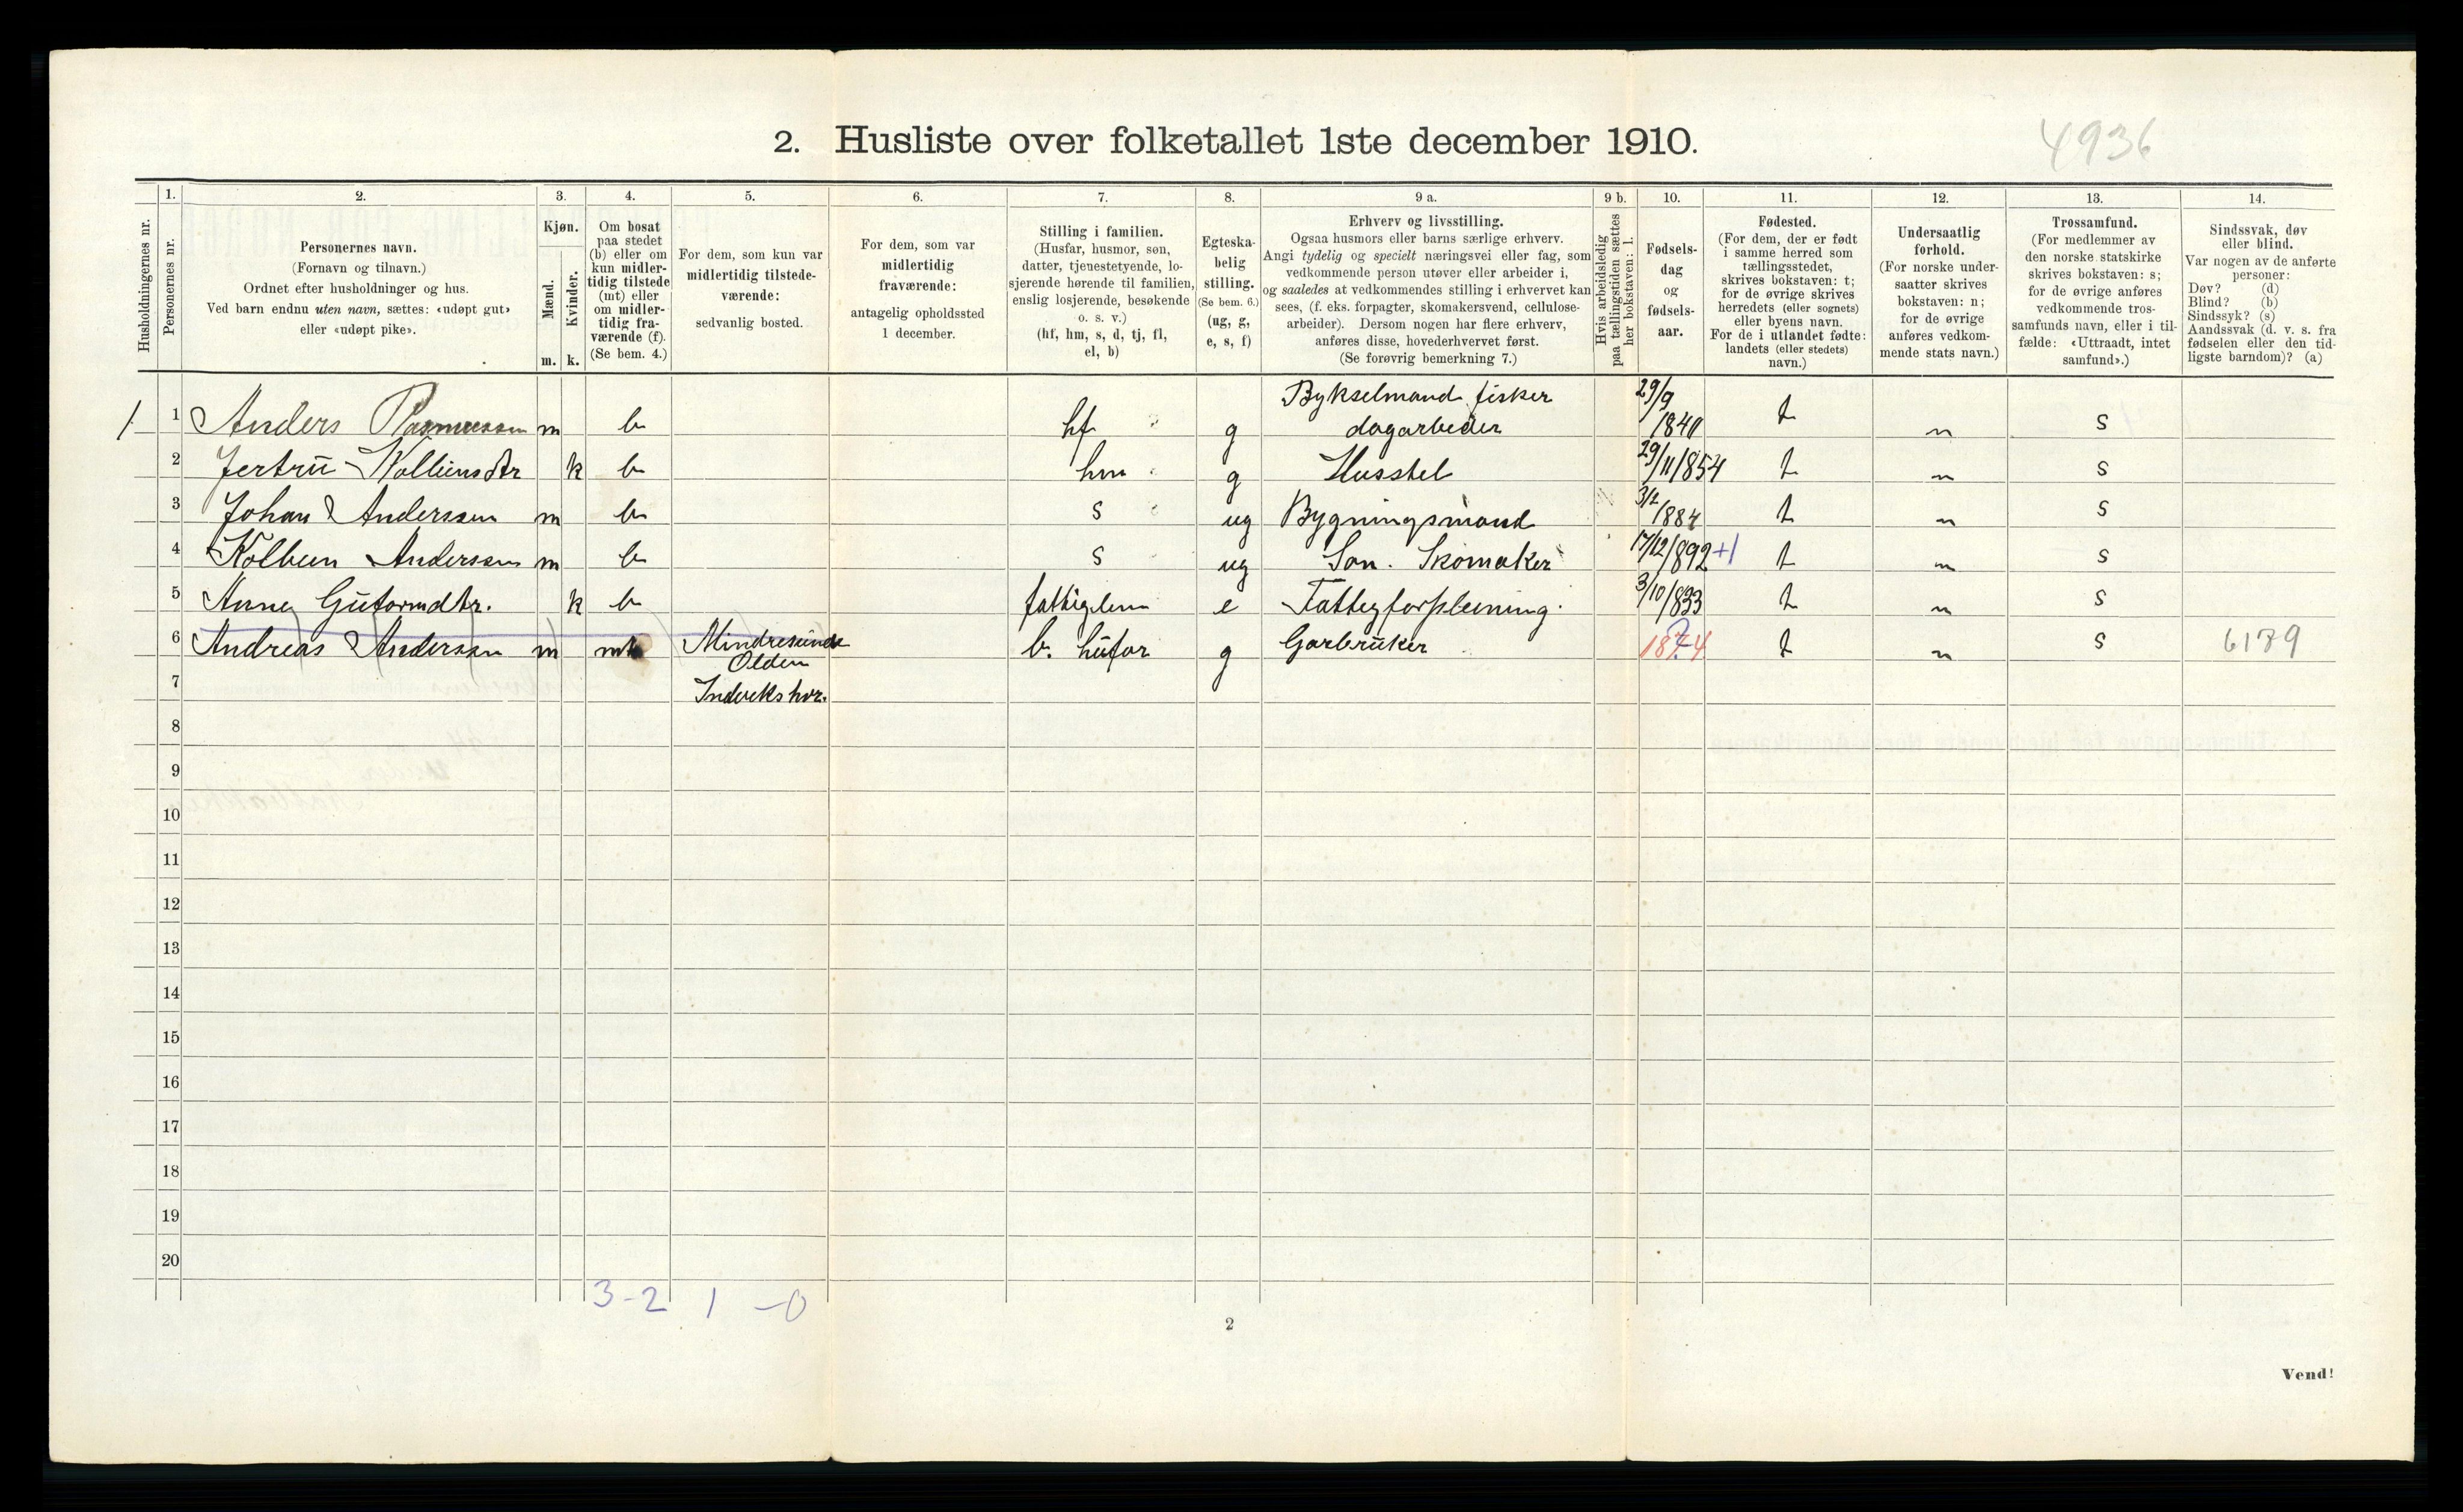 2. Husliste over folketallet 1ste december 1910.
4936
Husholdningernes nr.
1.
Personernes nr.
2.
Personernes navn.
(Fornavn og tilnavn.)
Ordnet efter husholdninger og hus.
Ved barn endnu uten navn, sættes: «udøpt gut»
eller «udøpt pike».
3.
Kjøn.
Mænd.
Kvinder.
m. k.
4.
Om bosat
paa stedet
(b) eller om
kun midler-
tidig tilstede
(mt) eller
om midler-
tidig fra-
værende (f).
(Se bem. 4.)
5.
For dem, som kun var
midlertidig tilstede-
værende:
sedvanlig bosted.
6.
For dem, som var
midlertidig
fraværende:
antagelig opholdssted
1 december.
7.
Stilling i familien.
(Husfar, husmor, søn,
datter, tjenestetyende, lo-
sjerende hørende til familien,
enslig losjerende, besøkende
o. s. v.)
(hf, hm, s, d, tj, fl,
el, b)
8.
Egteska-
belig
stilling.
(Se bem. 6.)
(ug, g,
e, s, f)
9 a.
Erhverv og livsstilling.
Ogsaa husmors eller barns særlige erhverv.
Angi tydelig og specielt næringsvei eller fag, som
vedkommende person utøver eller arbeider i,
og saaledes at vedkommendes stilling i erhvervet kan
sees, (f. eks. forpagter, skomakersvend, cellulose-
arbeider). Dersom nogen har flere erhverv,
anføres disse, hovederhvervet først.
(Se forøvrig bemerkning 7.)
9 b.
Hvis arbeidsledig
paa tællingstiden sættes
her bokstaven: l.
10.
Fødsels-
dag
og
fødsels-
aar.
11.
Fødested.
(For dem, der er født
i samme herred som
tællingsstedet,
skrives bokstaven: t;
for de øvrige skrives
herredets (eller sognets)
eller byens navn.
For de i utlandet fødte:
landets (eller stedets)
navn.)
12.
Undersaatlig
forhold.
(For norske under-
saatter skrives
bokstaven: n;
for de øvrige
anføres vedkom-
mende stats navn.)
13.
Trossamfund.
(For medlemmer av
den norske statskirke
skrives bokstaven: s;
for de øvrige anføres
vedkommende tros-
samfunds navn, eller i til-
fælde: «Uttraadt, intet
samfund».)
14.
Sindssvak, døv
eller blind.
Var nogen av de anførte
personer:
Døv? (d)
Blind? (b)
Sindssyk? (s)
Aandssvak (d. v. s. fra
fødselen eller den tid-
ligste barndom)? (a)
1 1 Anders Rasmussen m b hf g Bykselmand fisker dagarbeider 29/9 1840 t n s
2 Jertrü k b hm g Husstel 29/11/854 t n s
3 Johan Anderssen m b s ug Bygningsmand 1884 t n s
4 Kolbein Anderssen m b s ug Søn. Skomaker 17/12/892 +1 t n s
5 Anne Gutormdtr. k b fattiglem e 3/10/833 t n s
6 Andreas Anderssen m mt Mindresunde b. hüfar g Garbrüker 1874 t n s 6179
Olden
7 Indvikshr.
8
9
10
11
12
13
14
15
16
17
18
19
20
3-2 1-0
2
Vend!